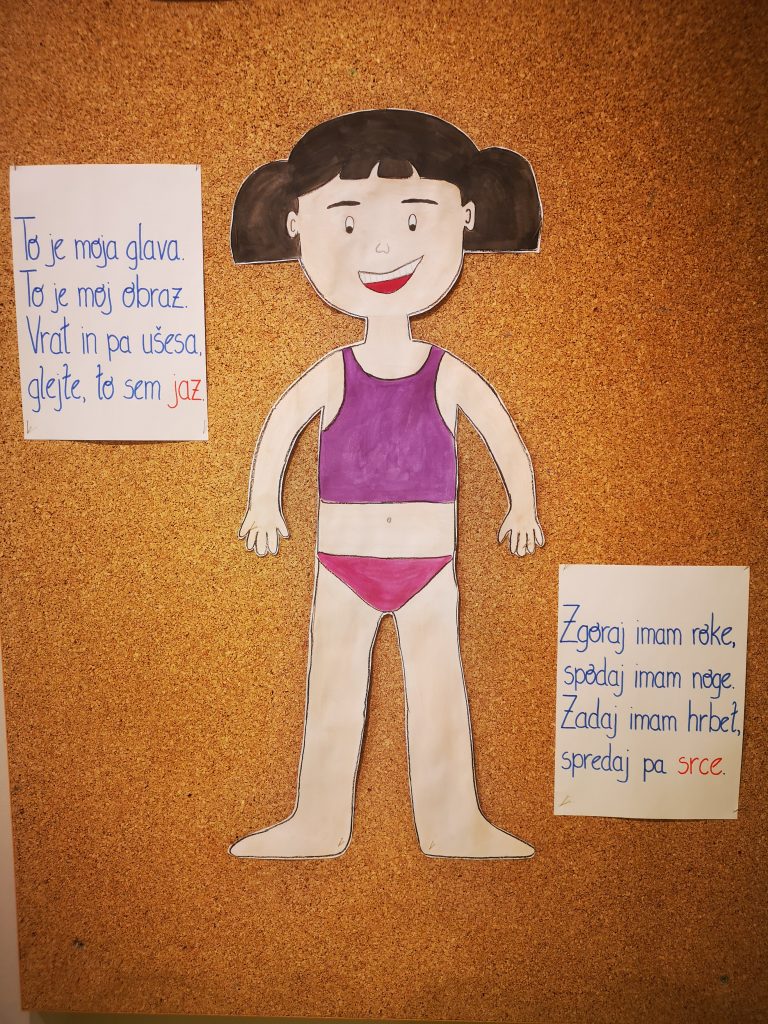 To je moja glava.
To je moj obraz.
Vrat in pa ušesa,
glejte, to sem jaz.
Zgoraj imam roke,
spodaj imam noge.
Zadaj imam hrbet,
spredaj pa srce.